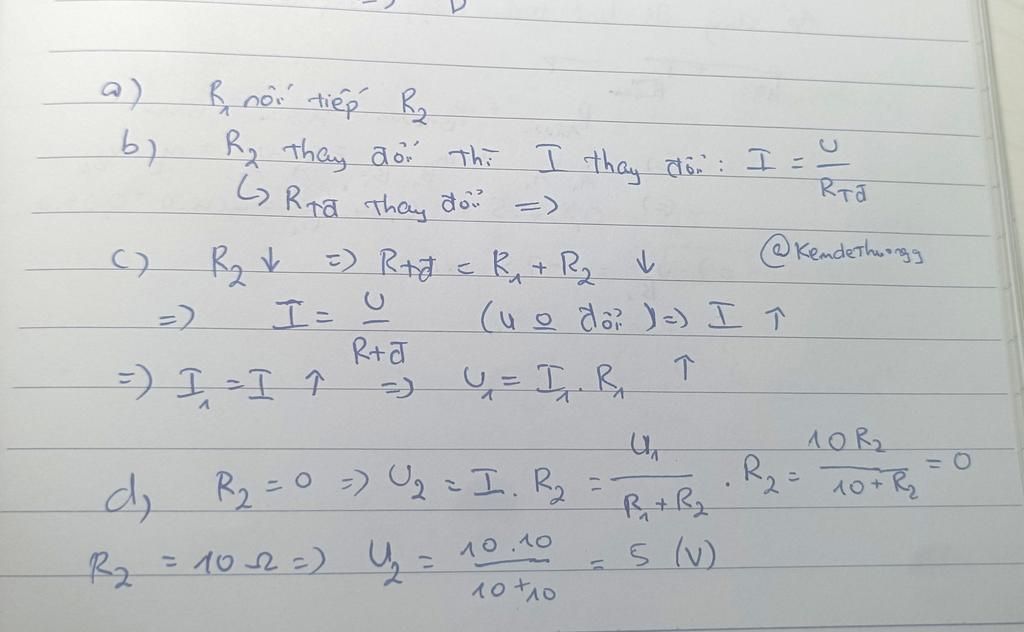 a) R₁ nối tiếp R₂
b) R₂ thay đổi thì I thay đổi: I = U/RTđ
↳ RTđ thay đổi =>
c) R₂ ↓ => Rtđ = R₁ + R₂ ↓
@Kemdethuongg
=> I = U/Rtđ (U o đổi) => I ↑
=> I₁ = I ↑ => U₁ = I₁ . R₁ ↑
d, R₂ = 0 => U₂ = I . R₂ = U₁/(R₁ + R₂) . R₂ = 10R₂/(10 + R₂) = 0
R₂ = 10 Ω => U₂ = 10.10/(10+10) = 5 (V)